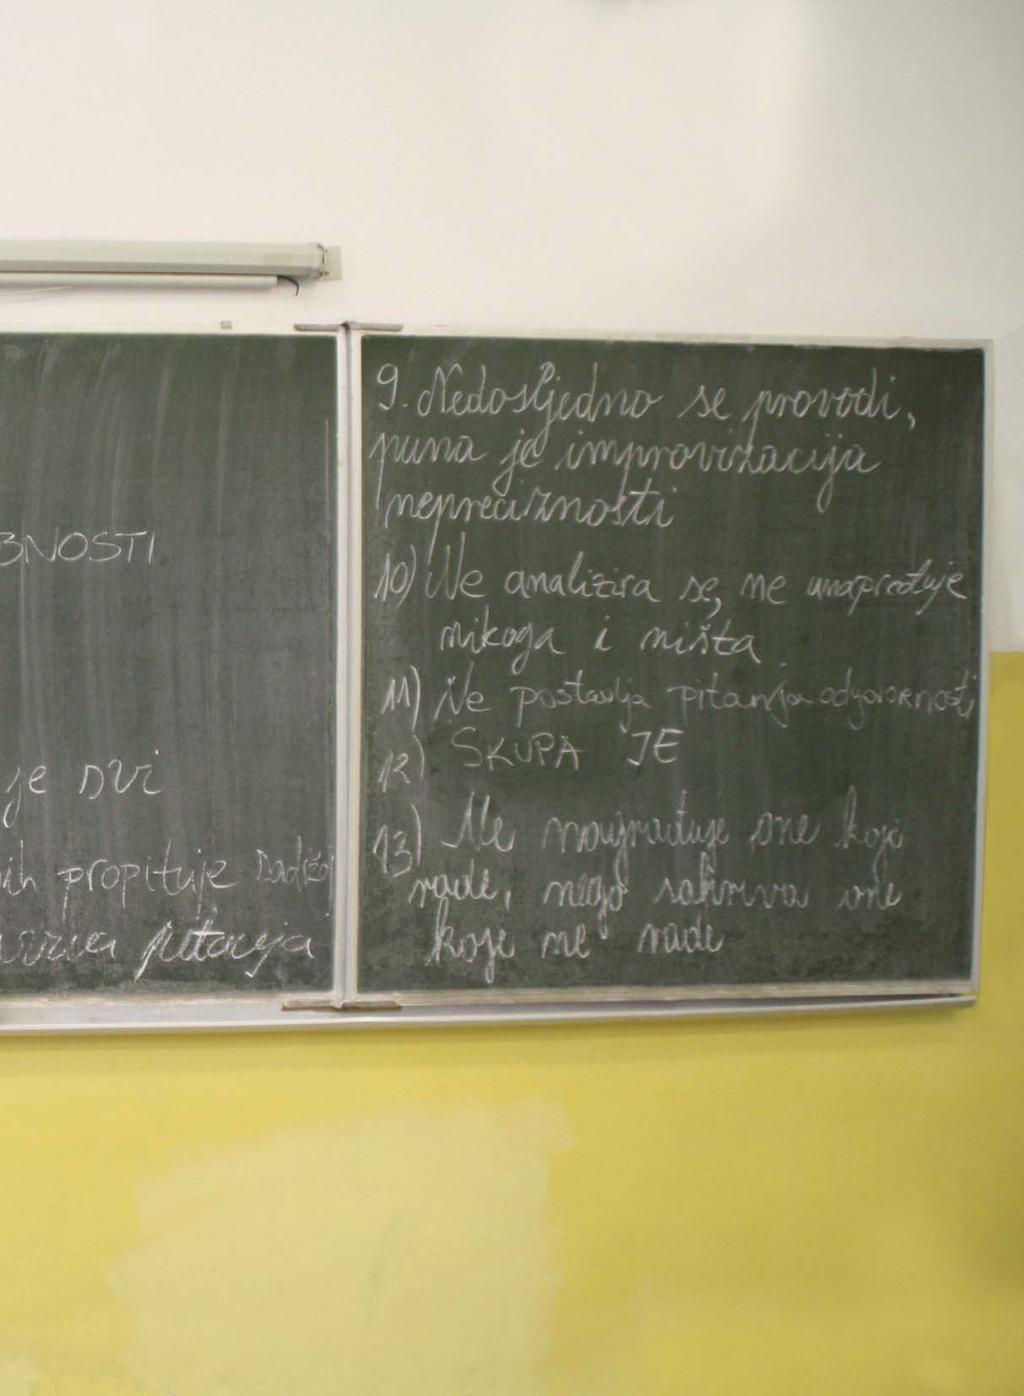 BNOSTI
je svi
nih propituje sadržo
putacija
9. Nedosljedno se provodi,
puna je improvizacija
nepreciznosti
10) Ne analizira se, ne unapređuje
nikoga i ništa
11) Ne postavlja pitanja odgovornosti
12) SKUPA JE
13) Ne nagrađuje one koji
rade, nego sakriva one
koje ne rade